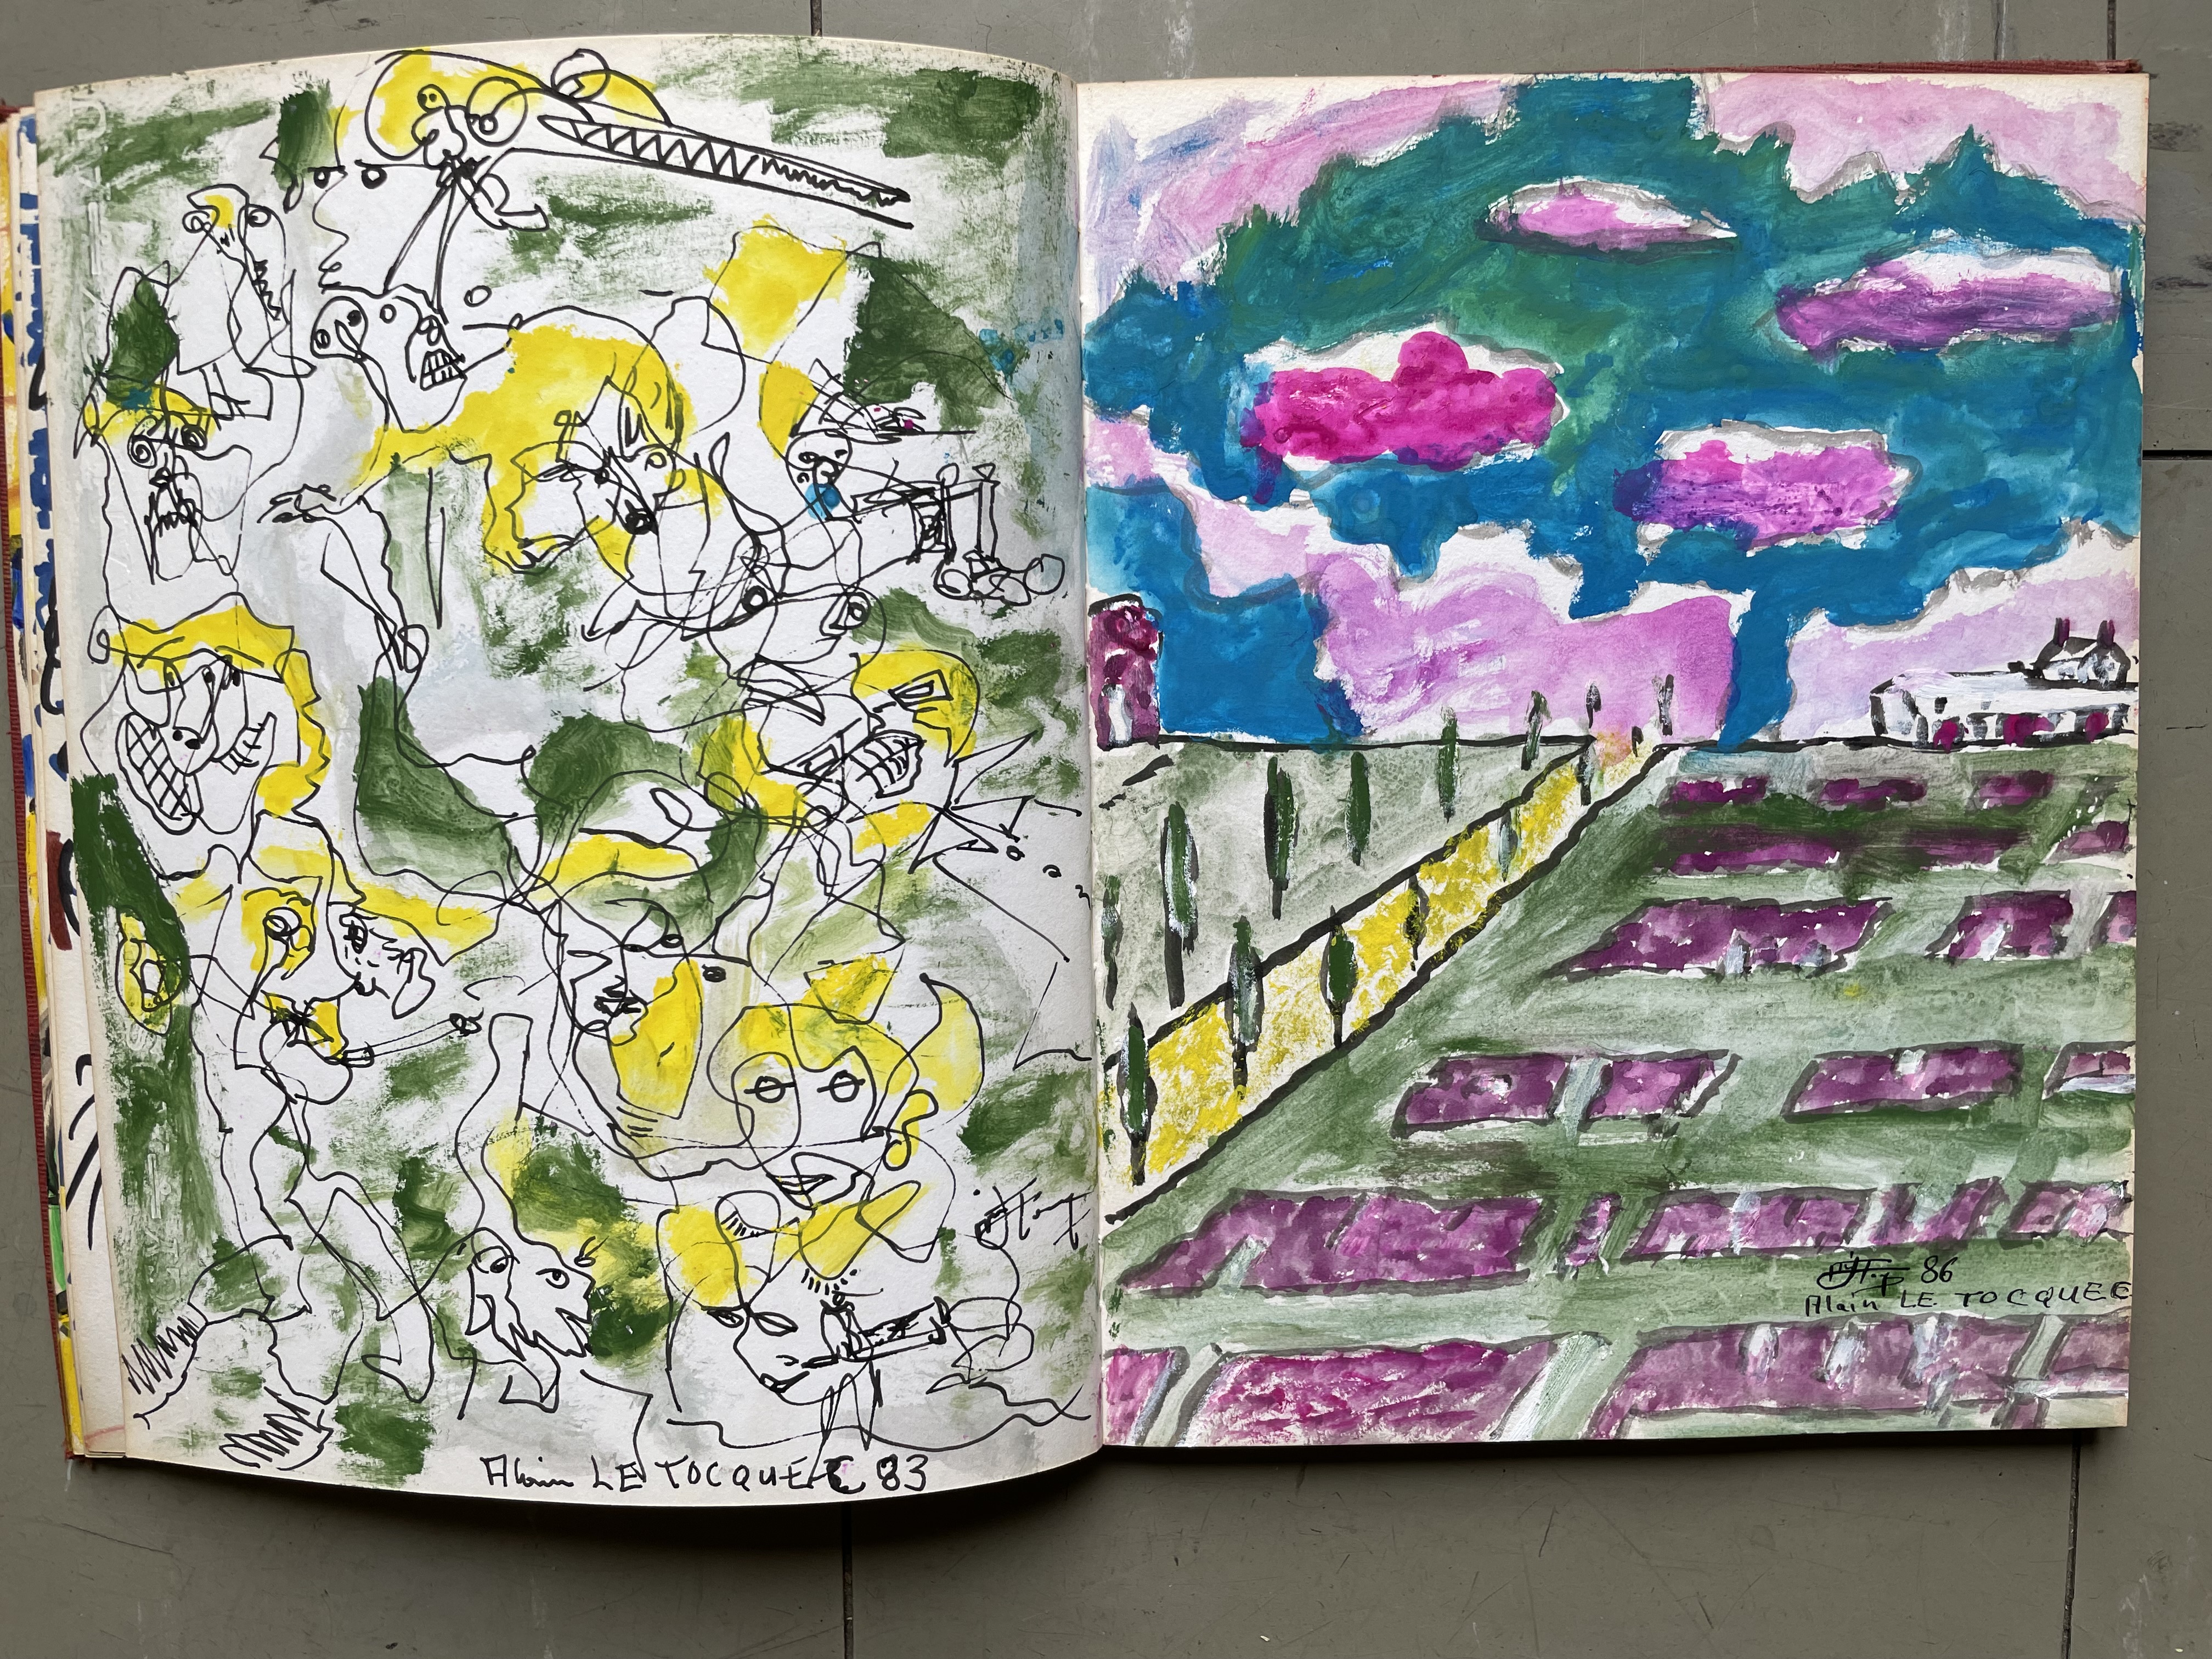 Alain LE TOCQUEE 83
86
Alain LE TOCQUEE